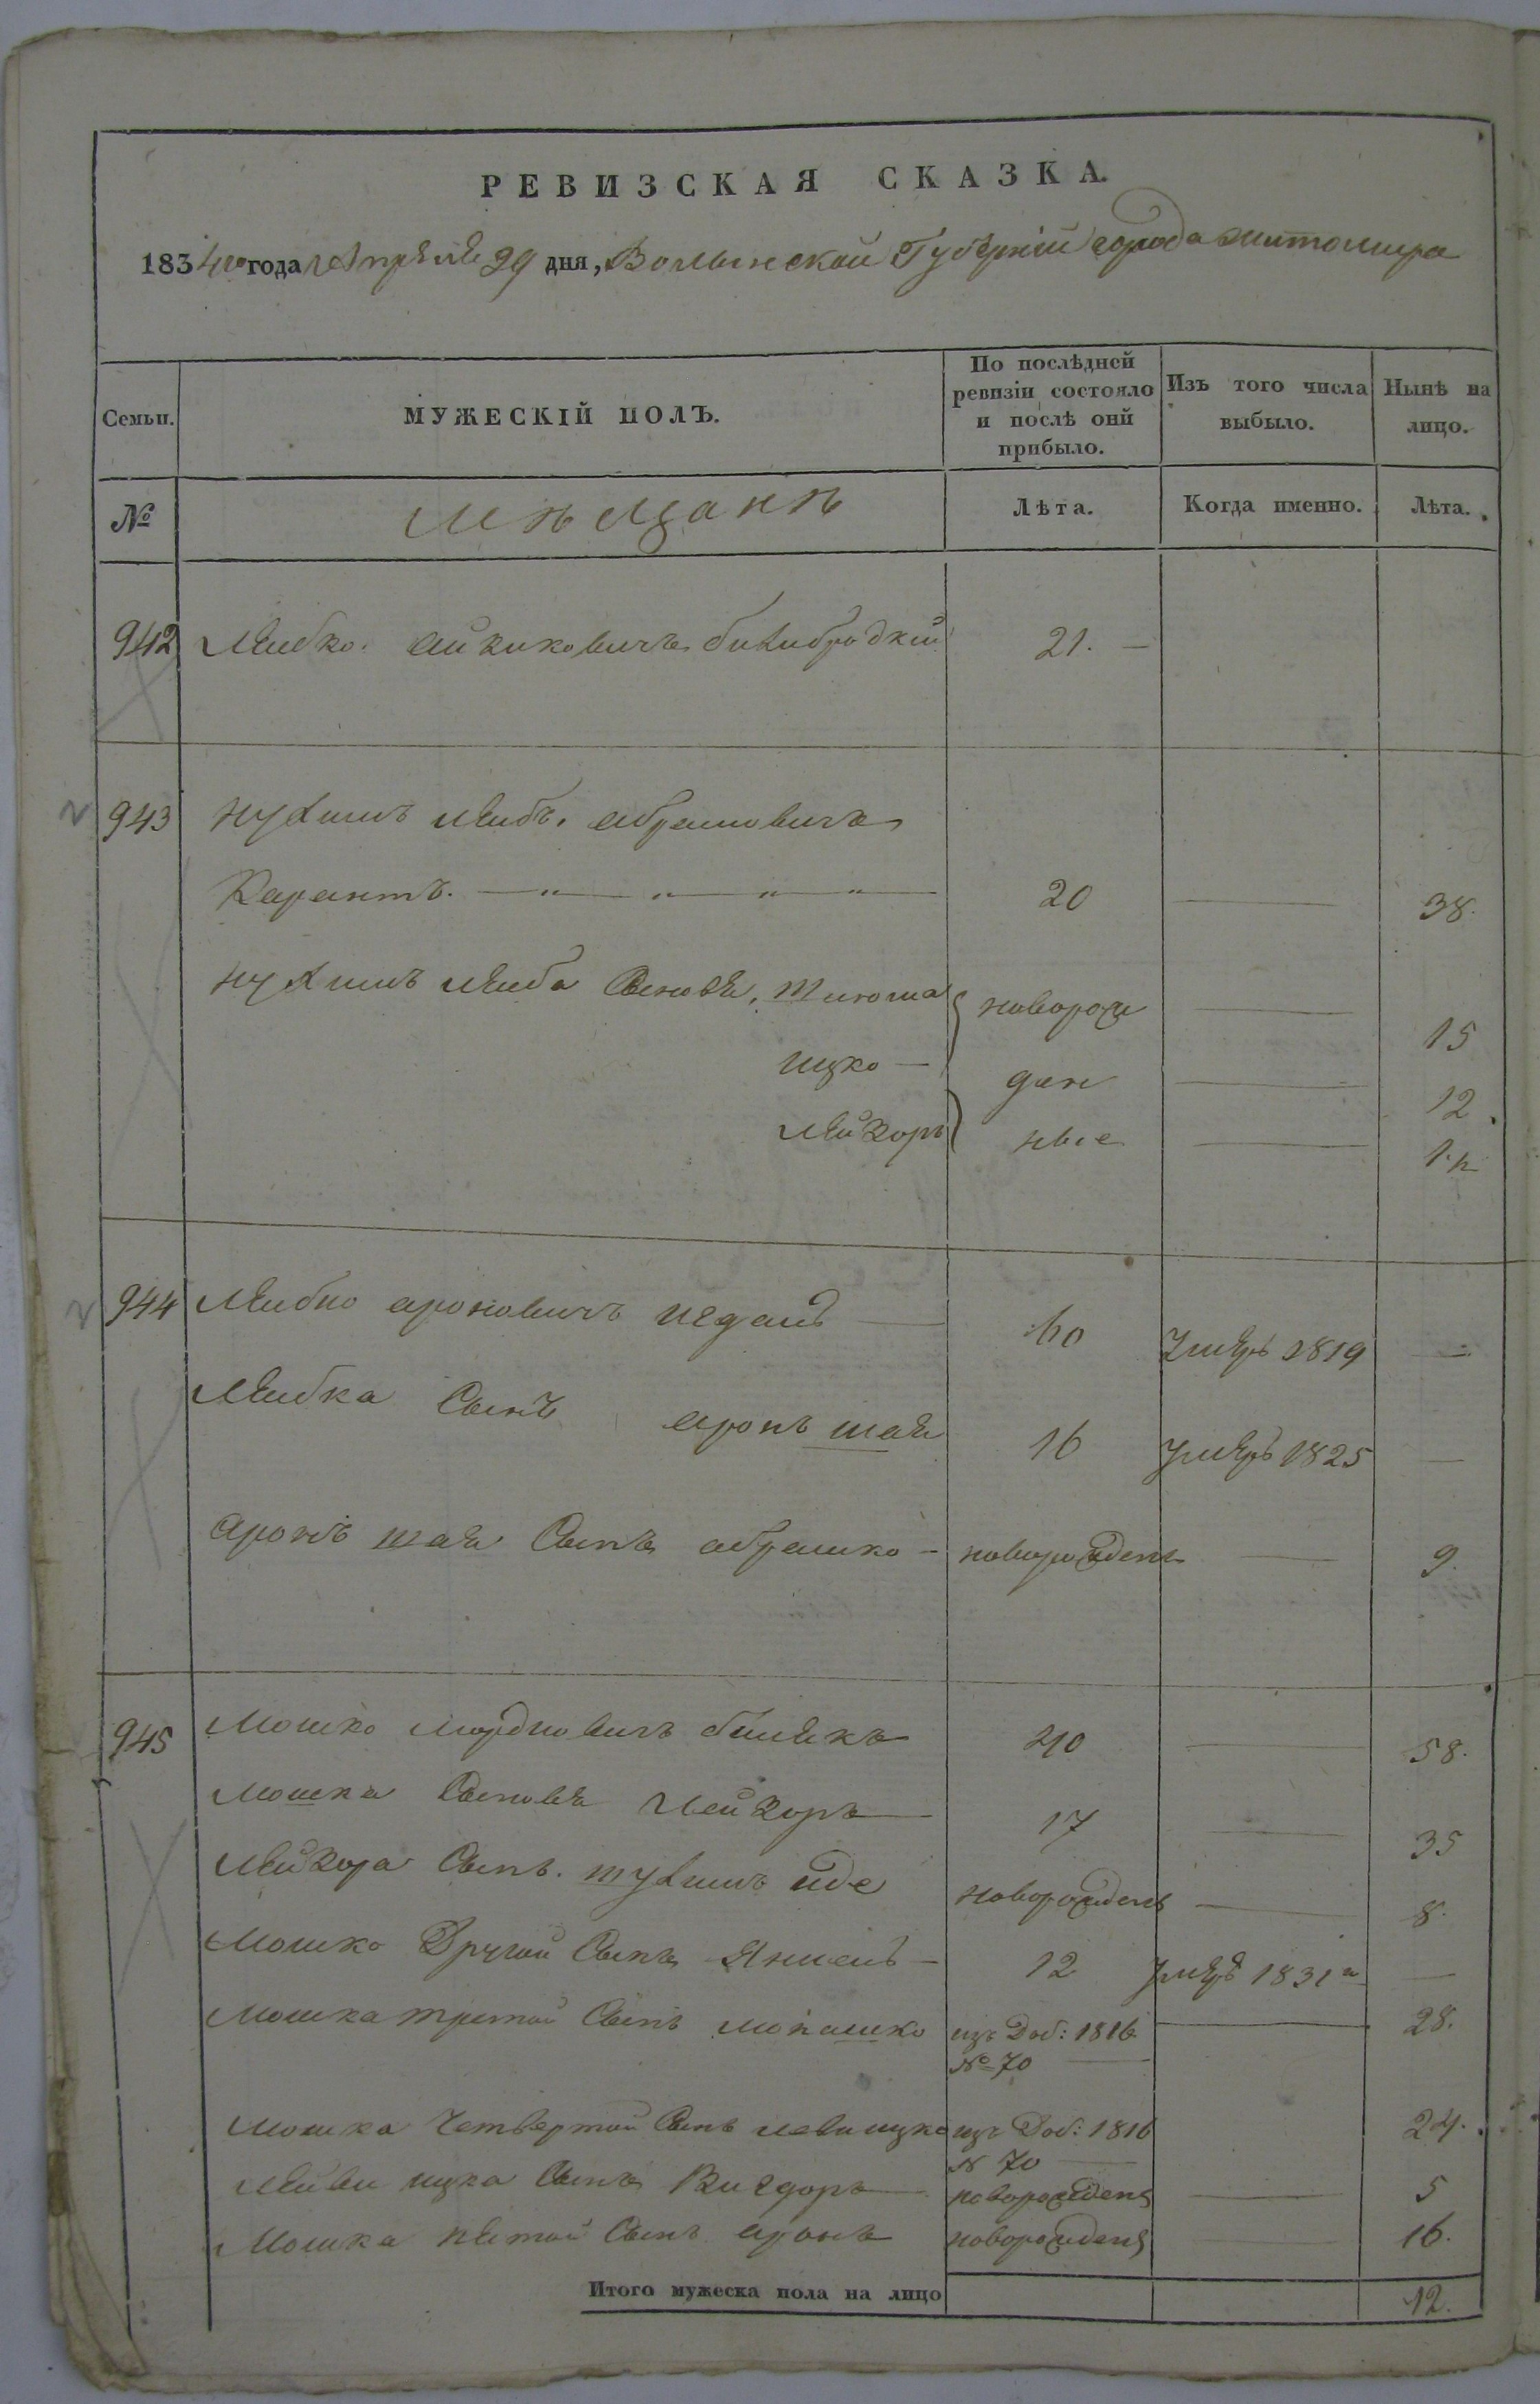 РЕВИЗСКАЯ СКАЗКА.
1834го года Апреля 29 дня, Волынской Губернiи города Житомира
Семьи. МУЖЕСКIЙ ПОЛЪ. По послѣдней ревизiи состояло и послѣ онй прибыло. Изъ того числа выбыло. Нынѣ на лицо.
№ Мѣщанѣ Лѣта. Когда именно. Лѣта.
942 Лейбко 21. —
943 Нухимъ Лейбъ Абрамовичъ
Карантъ. — „ „ „ „ — 20 — 38.
Нухимъ Лейба Сыновя, новорож — 15
Ицко — ден — 12
Лейзоръ ные — 1.
944 Лейбко Ароновичъ — 60 Умеръ 1819 —
Лейбка Сынъ Аронъ Шая 16 Умеръ 1825 —
Аронъ Шая Сынъ Абрамко — новорожденъ — 9.
945 Мошко Мордковичъ 40 — 58.
Мошка Сыновя Лейзоръ — 17 — 35
Лейзора Сынъ. 8.
новорожденъ —
Мошко Другой Сынъ Янкель — 12 Умеръ 1831 —
Мошка третой Сынъ изъ Доб: 1816 — 28.
№ 70 —
Мошка Четвертой Сынъ Ицко изъ Доб: 1816 24.
№ 70 —
Ицка Сынъ Вигдоръ — новорожденъ — 5
Мошка пятой Сынъ Аронъ новорожденъ — 16.
Итого мужеска пола на лицо 12.